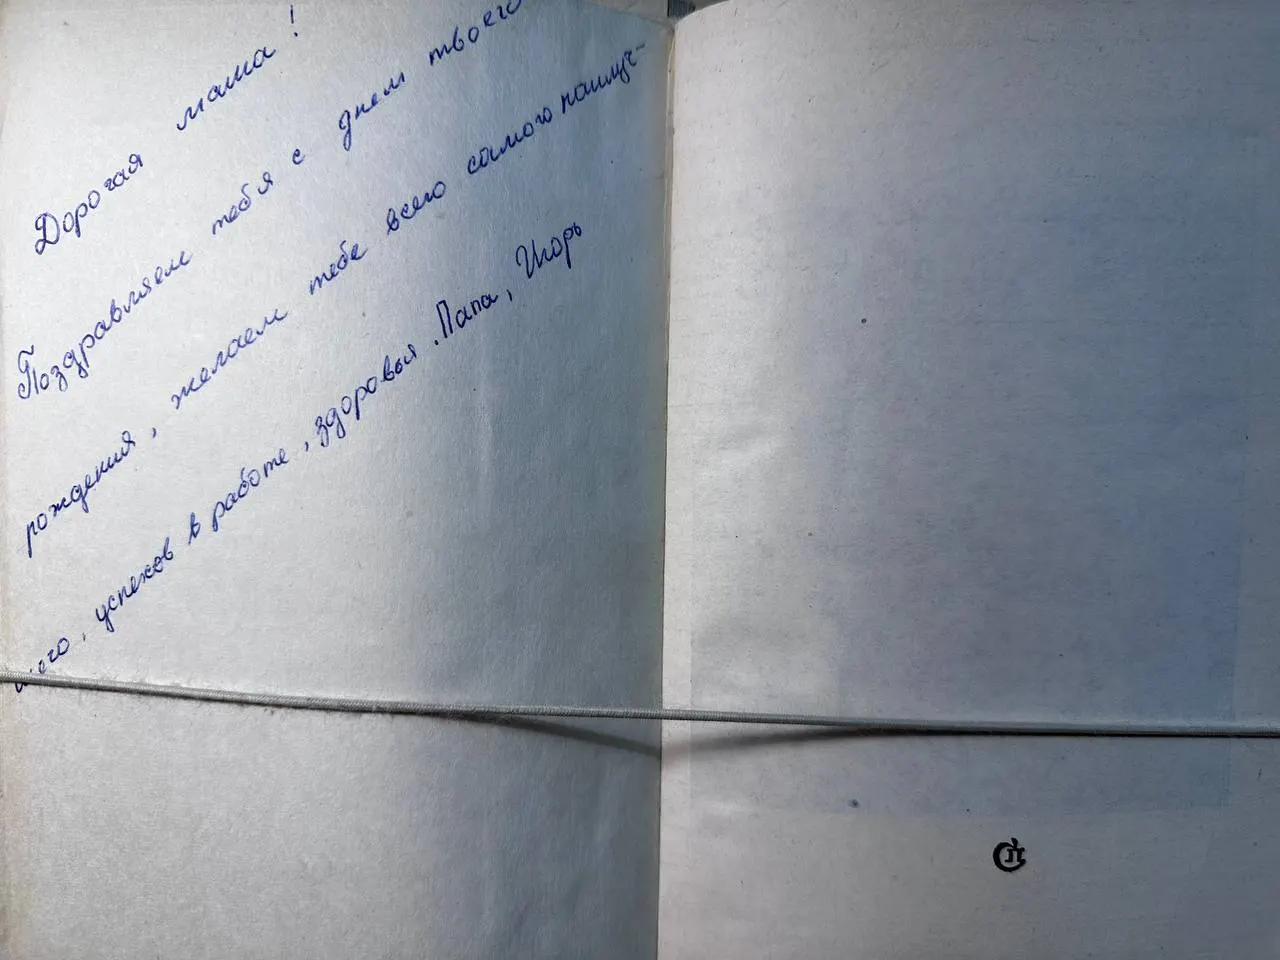 Дорогая мама!
Поздравляем тебя с днем твоего
рождения, желаем тебе всего самого наилуч-
шего, успехов в работе, здоровья. Папа, Игорь